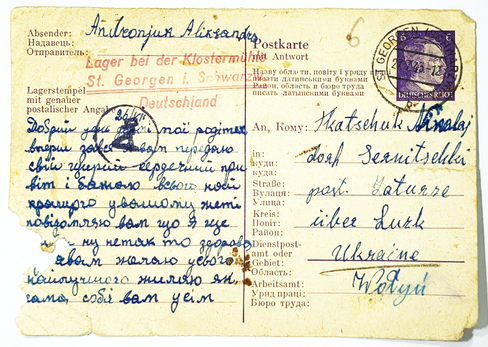 Absender: Andronjuk Aliksandra
Надавець:
Отправитель:
Lager bei der Klostermühle
St. Georgen i. Schwarzw
Deutschland
Lagerstempel
mit genauer
postalischer Angabe
Добрий день мої родителі
вперш
свій щирий сердечний при
віт і бажаю всего най
кращого у вашому житі
повідомляю вам що я ще
ну нетак то здорова
вам желаю усього
найлучшого желяю як
сама собі вам усім
6
Postkarte
mit Antwort
Назву области, повіту і уряду
писати латинськими буквами
Район, область и бюро труда
писать латинскими буквами
ST GEORGEN
DEUTSCHES REICH
An, Кому: Tkatschuk Nikolaj
in:
куди:
куда:
dorf Sernitschki
Straße:
Вулиця:
Улица:
post. Zaturze
Kreis:
Повіт:
Район:
über Luzk
Dienstpost-
amt oder
Gebiet:
Область:
Ukraine
Arbeitsamt:
Уряд праці:
Бюро труда:
Wolyń